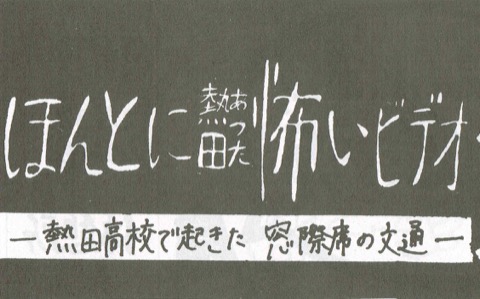 ほんとに熱田あった怖いビデオ
―熱田高校で起きた 窓際席の文通―